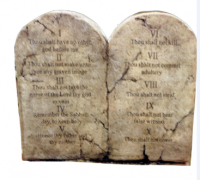 Thou shalt have no other
gods before me
II
Thou shalt not make unto
thee any graven image
III
Thou shalt not take the
name of the Lord thy god
in vain
IV
Remember the Sabbath
day, to keep holy
thy mother
VI
Thou shalt not kill
VII
Thou shalt not commit
adultery
VIII
Thou shalt not steal
IX
Thou shalt not bear
false witness
X
Thou shalt not covet